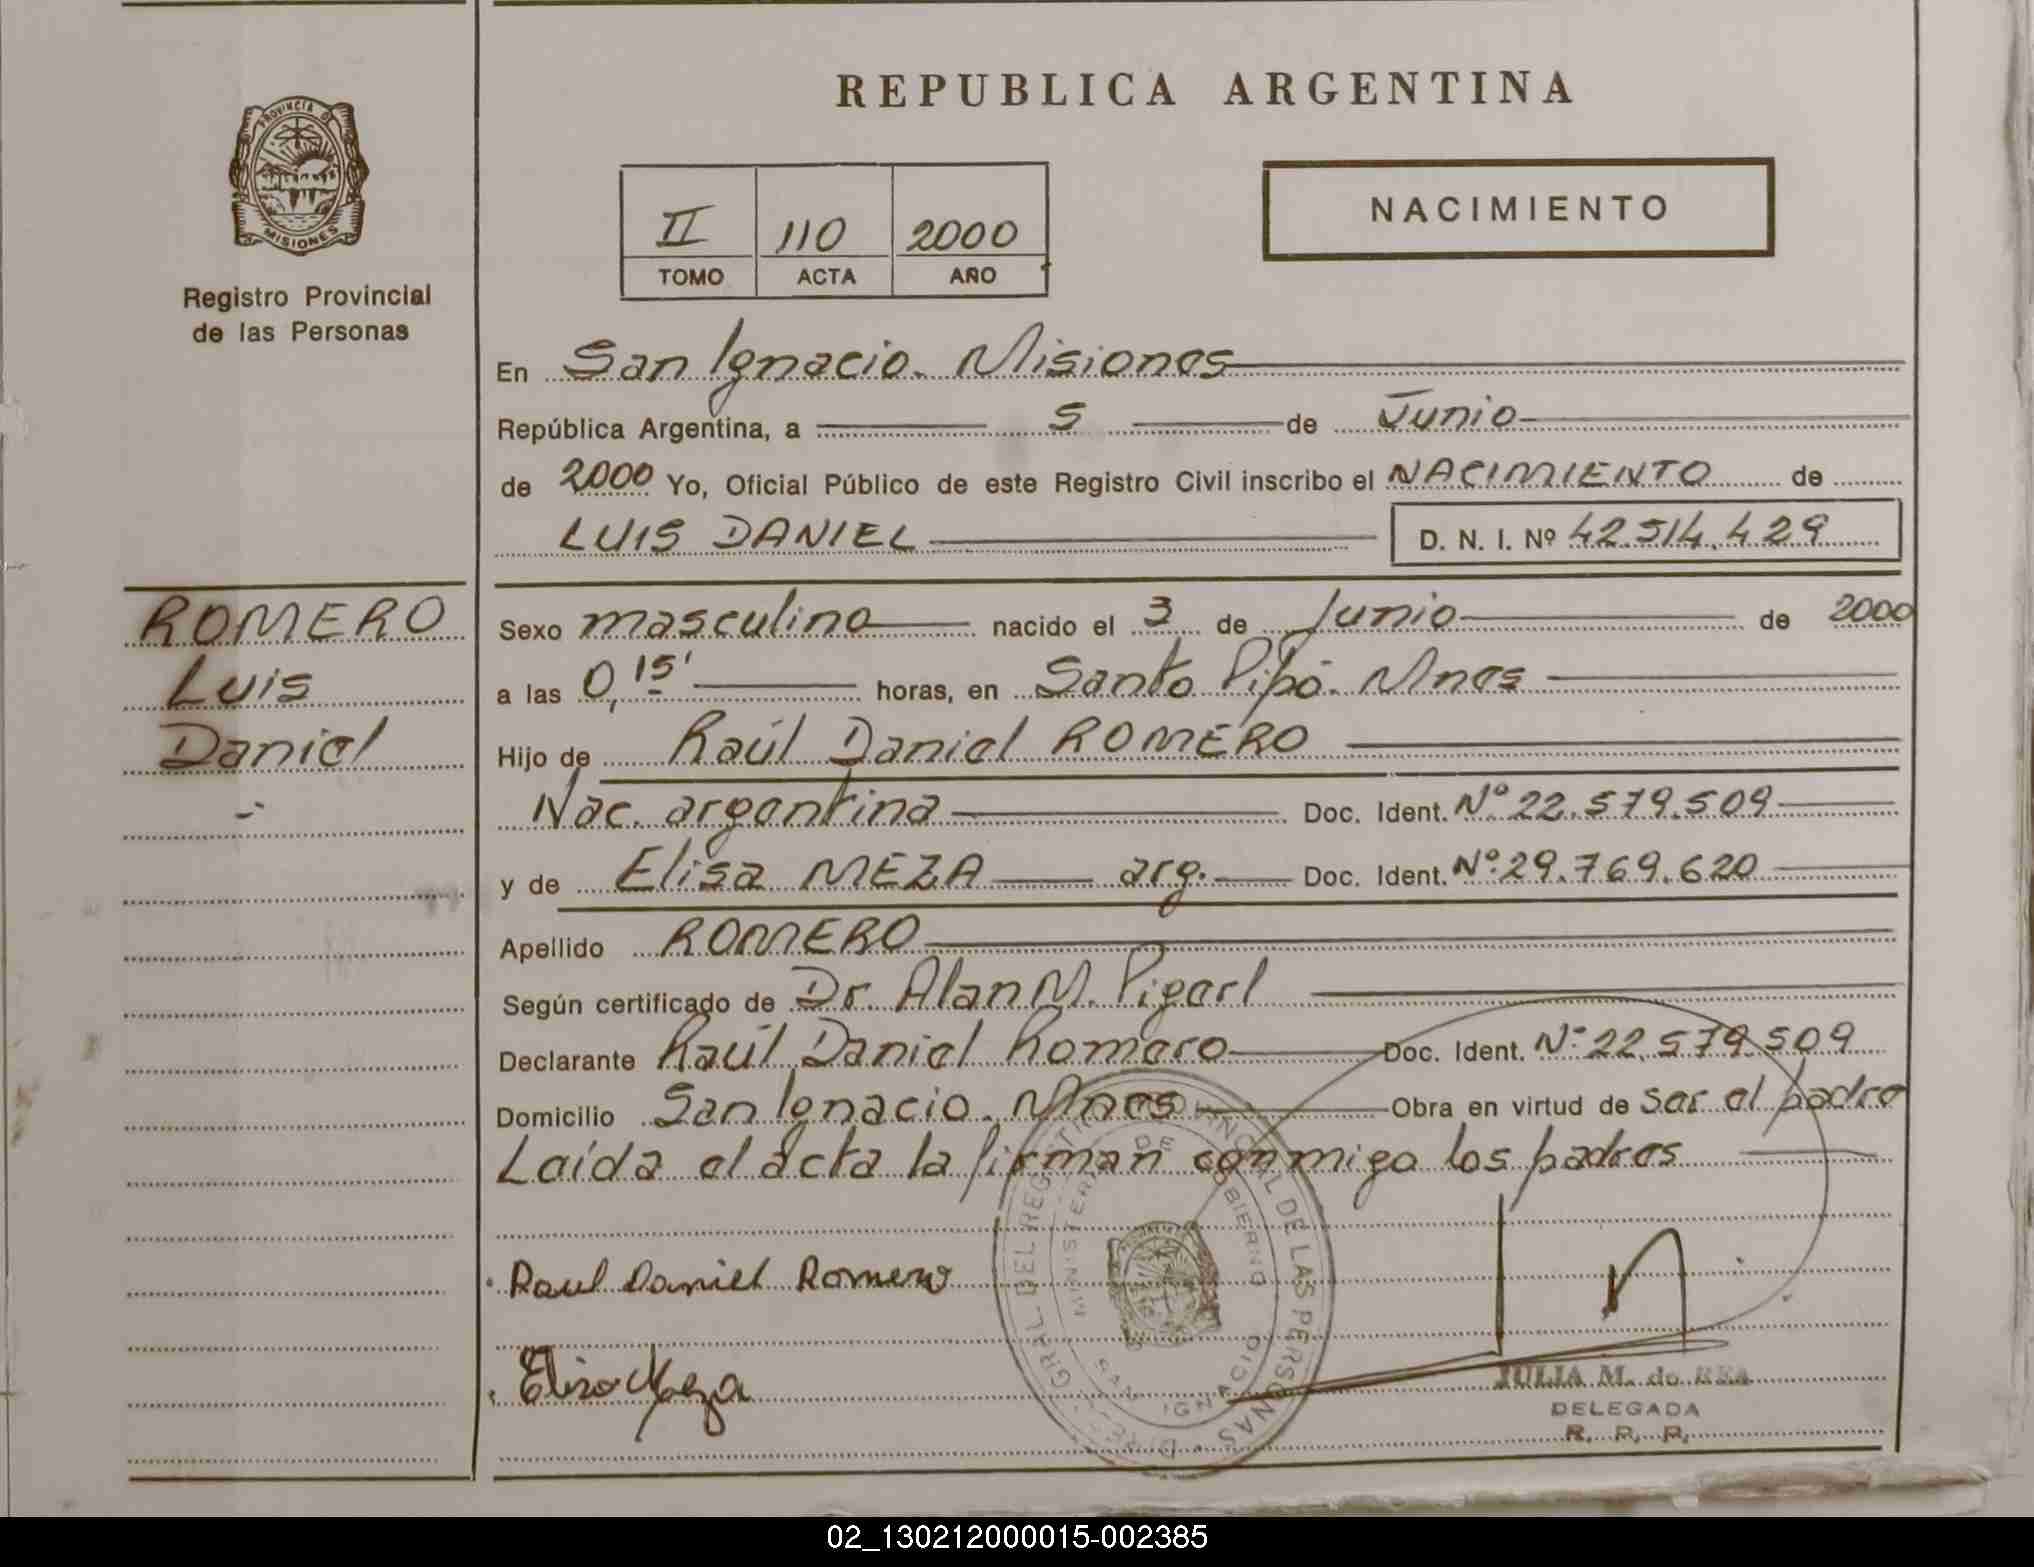 REPUBLICA ARGENTINA
PROVINCIA DE
MISIONES
Registro Provincial
de las Personas
NACIMIENTO
II 110 2000
TOMO ACTA AÑO
En San Ignacio. Misiones
República Argentina, a 5 de Junio
de 2000 Yo, Oficial Público de este Registro Civil inscribo el NACIMIENTO de
LUIS DANIEL D. N. I. Nº 42.514.429
ROMERO
Luis
Daniel
Sexo masculino nacido el 3 de Junio de 2000
a las 0,15' horas, en Santo Pipó. Mnes
Hijo de Raúl Daniel ROMERO
Nac. argentina Doc. Ident. Nº 22.579.509
y de Elisa MEZA arg. Doc. Ident. Nº 29.769.620
Apellido ROMERO
Según certificado de Dr. Alan M.
Declarante Raúl Daniel Romero Doc. Ident. Nº 22.579.509
Domicilio San Ignacio. Mnes Obra en virtud de ser el padre
Leída el acta la firman conmigo los padres
Raul Daniel Romero
Elisa Meza
DIREC. GRAL. DEL REGISTRO PROVINCIAL DE LAS PERSONAS
MINISTERIO DE GOBIERNO
SAN IGNACIO
JULIA M. de REA
DELEGADA
R. P. P.
02_130212000015-002385